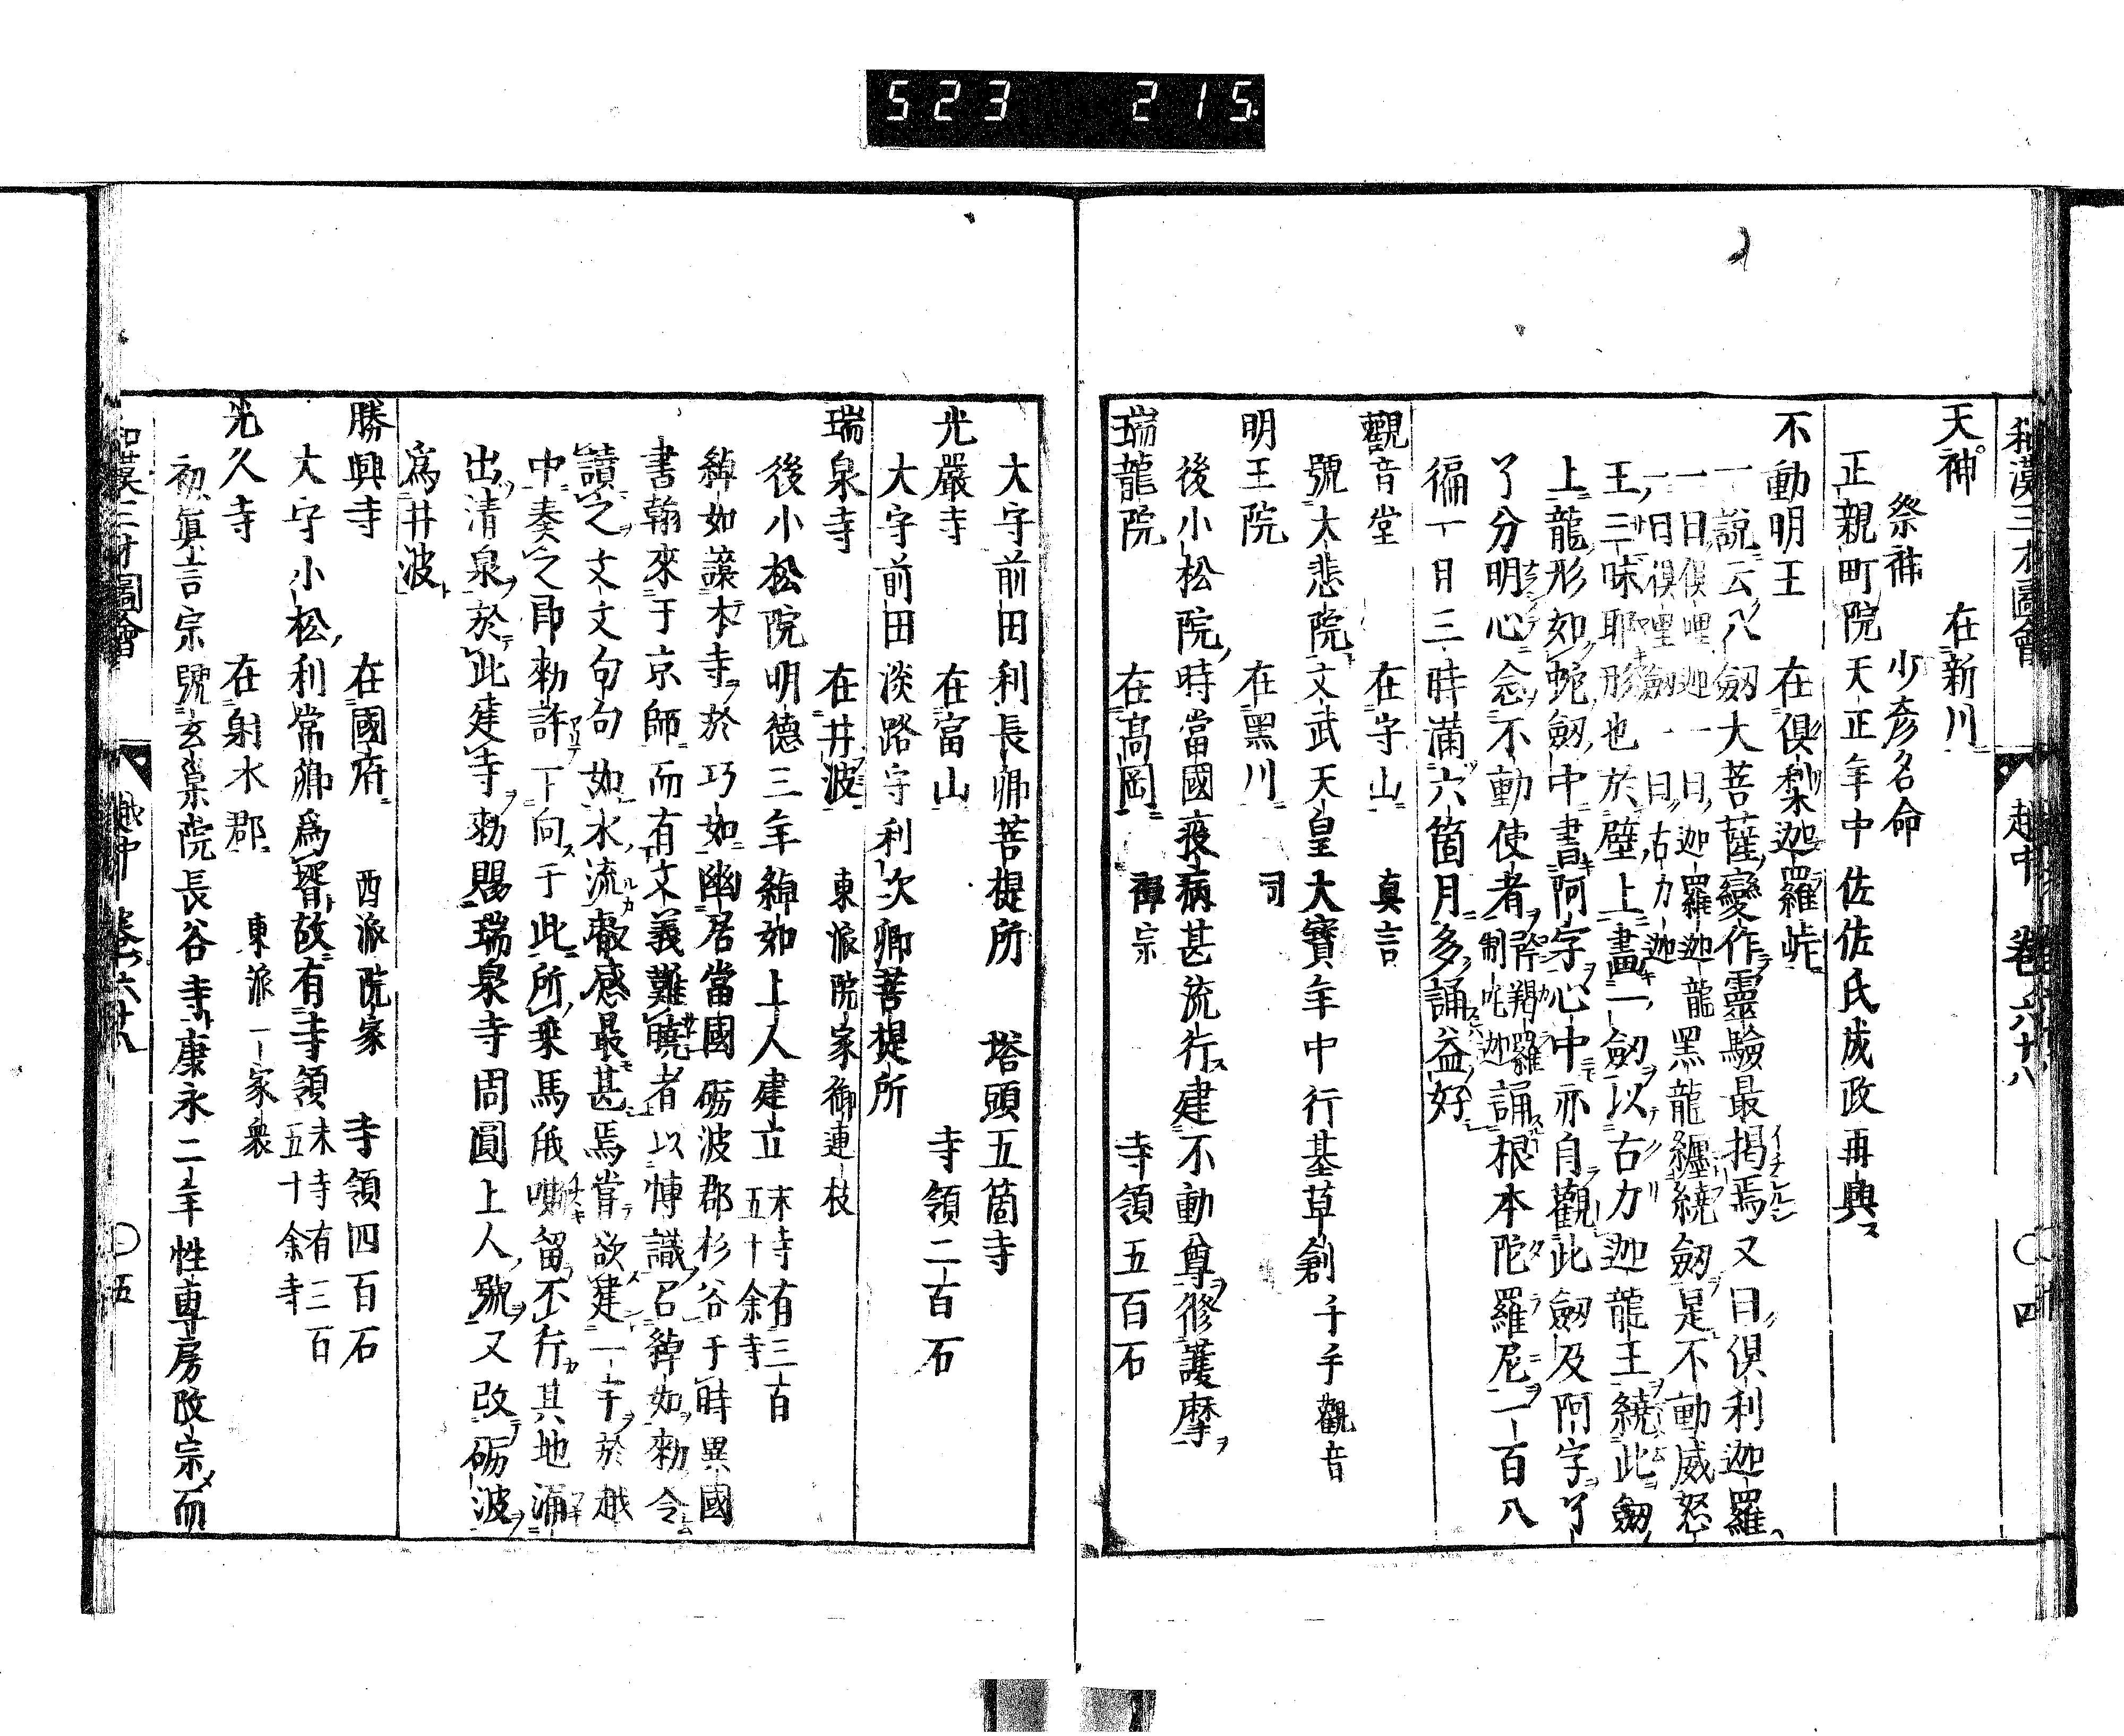 523 215
和漢三才圖會 越中 卷六十八 ○ 四
天神 在新川
祭神 少彥名命
正親町院天正年中佐佐氏成政再興ス
不動明王 在俱利迦羅峠
一說云八劔大菩薩變作靈驗最揭焉又曰俱利迦羅
一曰俱哩迦一曰迦羅迦龍黑龍纏繞劔是不動威怒
一曰俱哩劔一曰古力迦
王三昧耶形也於壁上畫一劔以古力迦龍王繞此劔
上龍形如蛇劔中書阿字心中亦自觀此劔及阿字了
了分明心念不動使者 矜羯羅 制吒迦 誦根本陀羅尼一百八
徧一日三時滿六箇月多誦益好
觀音堂 在守山 真言
號大悲院文武天皇大寶年中行基草創 千手觀音
明王院 在黑川 司
後小松院時當國疫病甚流行建不動尊修護摩
瑞龍院 在髙岡 禪宗 寺領五百石
大守前田利長卿菩提所 塔頭五箇寺
光嚴寺 在富山 寺領二百石
大守前田淡路守利次卿菩提所
瑞泉寺 在井波 東派院家御連枝
後小松院明德三年綽如上人建立 末寺有三百五十余寺
綽如讓本寺於巧如幽居當國砺波郡杉谷于時異國
書翰來于京師而有文義難曉者以博識召綽如勅令
讀之文文句句如水流叡感最甚焉嘗欲建一宇於越
中奏之即勅許下向于此所乗馬㡳嘶留不行其地涌
出清泉於此建寺勅賜瑞泉寺周圓上人號又改砺波
爲井波
勝興寺 在國府 西派院家 寺領四百石
大守小松利常卿爲壻故有寺領 末寺有三百五十余寺
光久寺 在射水郡 東派一家衆
初眞言宗號玄巢院長谷寺康永二年性專房改宗而
和漢三才圖會 越中 卷六十八 ○ 五